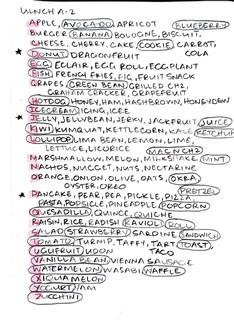 LUNCH A-Z
APPLE, AVOCADO, APRICOT BLUEBERRY
BURGER BANANA BOLOGNE, BISCUIT,
CHEESE, CHERRY, CAKE, COOKIE, CARROT,
COLA
DONUT, DRAGONFRUIT
EGG, ECLAIR, EGG ROLL, EGGPLANT
FISH, FRENCH FRIES, FIG, FRUIT SNACK
GRAPES, GREEN BEAN, GRILLED CHZ,
GRAHAM CRACKER, GRAPEFRUIT
HOTDOG, HONEY, HAM, HASHBROWN, HONEYDEW
ICECREAM, ICING, ICE
JELLY, JELLYBEAN, JERKY, JACKFRUIT JUICE
KIWI, KUMQUAT, KETTLECORN, KALE, KETCHUP
LOLLIPOP, LIMA BEAN, LEMON, LIME,
LETTUCE, LICORICE MAC N CHZ
MARSHMALLOW, MELON, MILKSHAKE, MINT
NACHOS, NUGGET, NUTS, NECTARINE
ORANGE, ONION, OLIVE, OATS, OKRA,
OYSTER, OREO PRETZEL
PANCAKE, PEAR, PEA, PICKLE, PIZZA
PASTA, POPSICLE, PINEAPPLE, POPCORN
QUESADILLA, QUINCE, QUICHE
RAISIN, RICE, RADISH, RAVIOLI, ROLL
SALAD, STRAWBERRY, SARDINE, SANDWICH
TOMATO, TURNIP, TAFFY, TART, TOAST,
UGLIFRUIT UDON TACO
VANILLA BEAN, VIENNA SAUSAGE
WATERMELON, WASABI, WAFFLE,
XIGUA MELON
YOGURT, YAM
ZUCCHINI